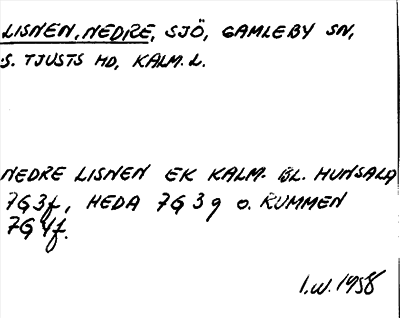 LISNEN, NEDRE, SJÖ, GAMLEBY SN,
S. TJUSTS HD, KALM. L.
NEDRE LISNEN EK KALM. BL. HUNSALA
7G3f, HEDA 7G3g o. RUMMEN
7G4f.
I.W. 1958